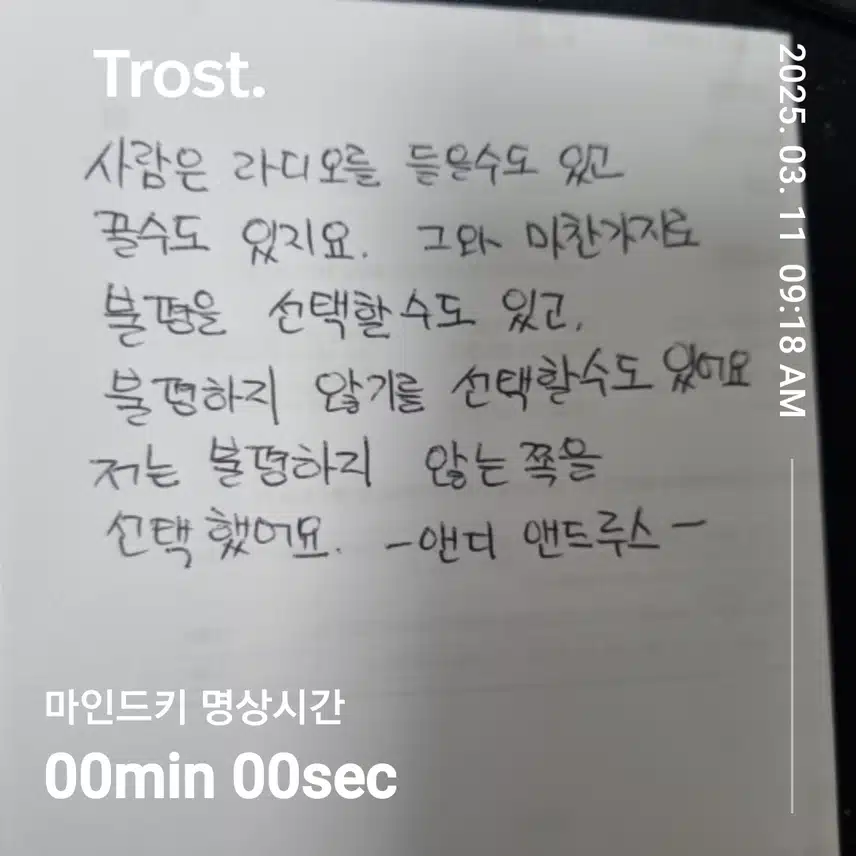 Trost.
2025. 03. 11 09:18 AM
사람은 라디오를 들을수도 있고
끌수도 있지요. 그와 마찬가지로
불평을 선택할수도 있고,
불평하지 않기를 선택할수도 있어요
저는 불평하지 않는 쪽을
선택했어요. -앤디 앤드루스-
마인드키 명상시간
00min 00sec